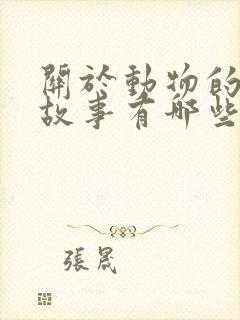 關於動物的
故事有哪些
張晟